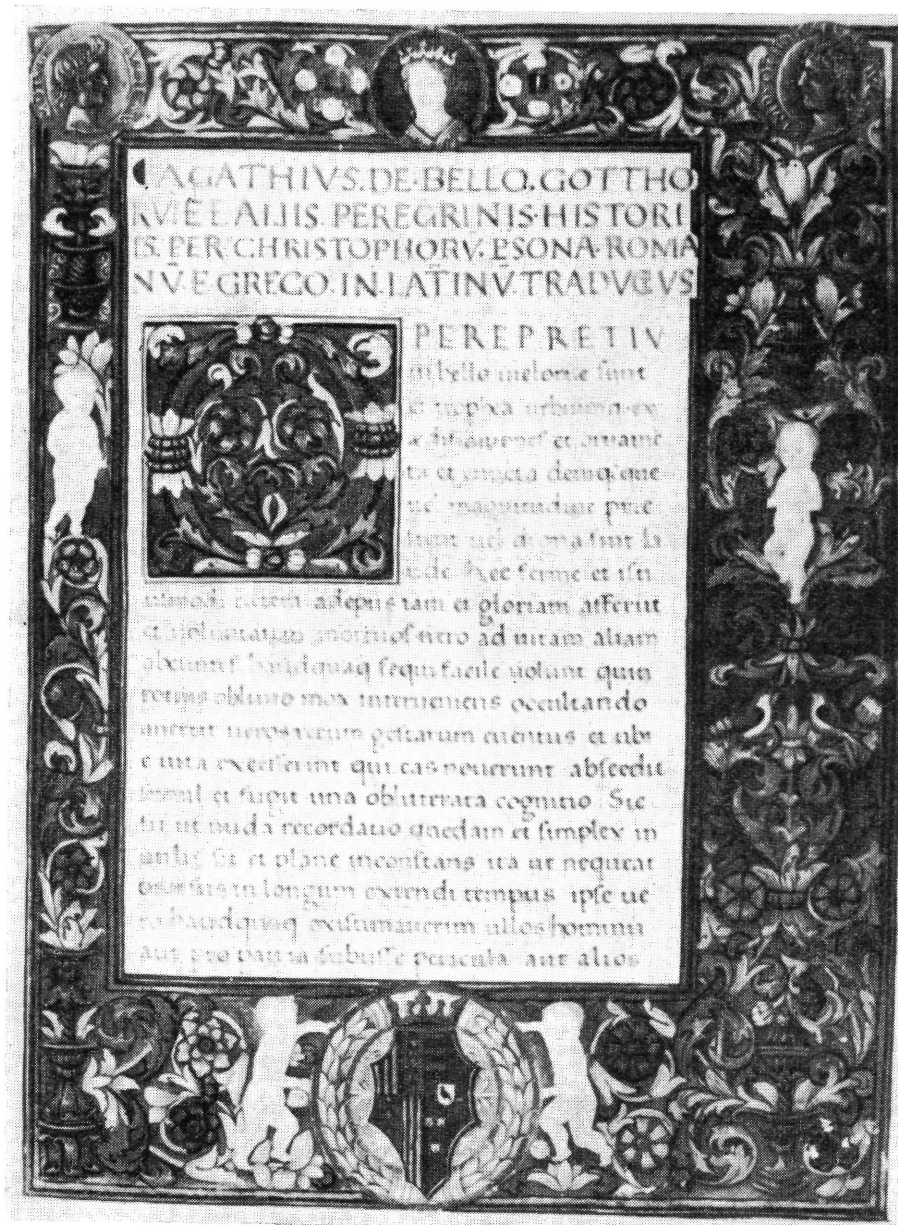 AGATHIVS. DE. BELLO. GOTTHO
RVM ALIIS. PEREGRINIS. HISTORI
IS. PER CHRISTOPHORV. PSONA. ROMA
NV̄. E. GRECO. IN. LATINV̄. TRADVCTVS
PEREPRETIV
in bello uictorie sunt
et trophea urbium ex
et ornamē
ta et cuncta
magnitudine pre
sint la
hec ferme et isti
adeptis tam et gloriam afferūt
et uoluptatem mortuos uero ad uitam aliam
haudquaq sequi facile uolunt quin
obliuio mox interueniens occultando
uerit ueros rerum gestarum euentus et ubi
e uita excesserint qui eas nouerunt abscedit
simul et fugit una obliterata cognitio Sic
fit ut nuda recordatio quedam et simplex in
sit et plane inconstans ita ut nequeat
in longum extendi tempus ipse ue
ro haudquaq existimauerim ullos hominū
aut pro patria subuisse pericula aut alios